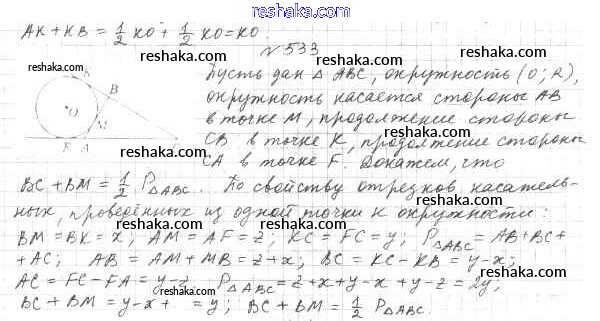 reshaka.com
AK + KB = 1/2 KO + 1/2 KO = KO.
reshaka.com
№533
reshaka.com
K
B
O
M
F A C
reshaka.com
reshaka.com
Пусть дан △ ABC, окружность (O; R),
окружность касается стороны AB
в точке M, продолжение стороны
CB в точке K, продолжение стороны
CA в точке F. Докажем, что
reshaka.com
reshaka.com
BC + BM = 1/2 P△ABC. По свойству отрезков касатель-
ных, проведённых из одной точки к окружности:
reshaka.com
reshaka.com
BM = BK = x; AM = AF = z; KC = FC = y; P△ABC = AB + BC +
+ AC; AB = AM + MB = z + x; BC = KC - KB = y - x;
reshaka.com
AC = FC - FA = y - z. P△ABC = z + x + y - x + y - z = 2y;
reshaka.com
BC + BM = y - x + = y; BC + BM = 1/2 P△ABC.
reshaka.com